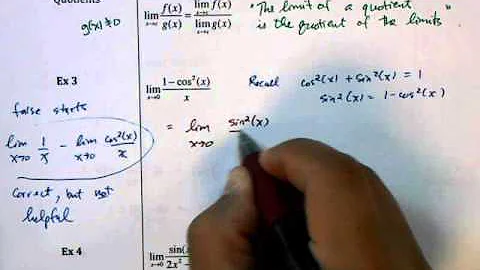 Quotients
g(x) ≠ 0
lim x→c f(x)/g(x) = lim x→c f(x) / lim x→c g(x)
"The limit of a quotient"
is the quotient of the limits
Ex 3
lim x→0 1−cos²(x) / x
Recall cos²(x) + sin²(x) = 1
sin²(x) = 1 − cos²(x)
false starts
lim x→0 1/x − lim x→0 cos²(x)/x
= lim x→0 sin²(x)
correct, but not
helpful
Ex 4
lim x→0 sin( 2x²